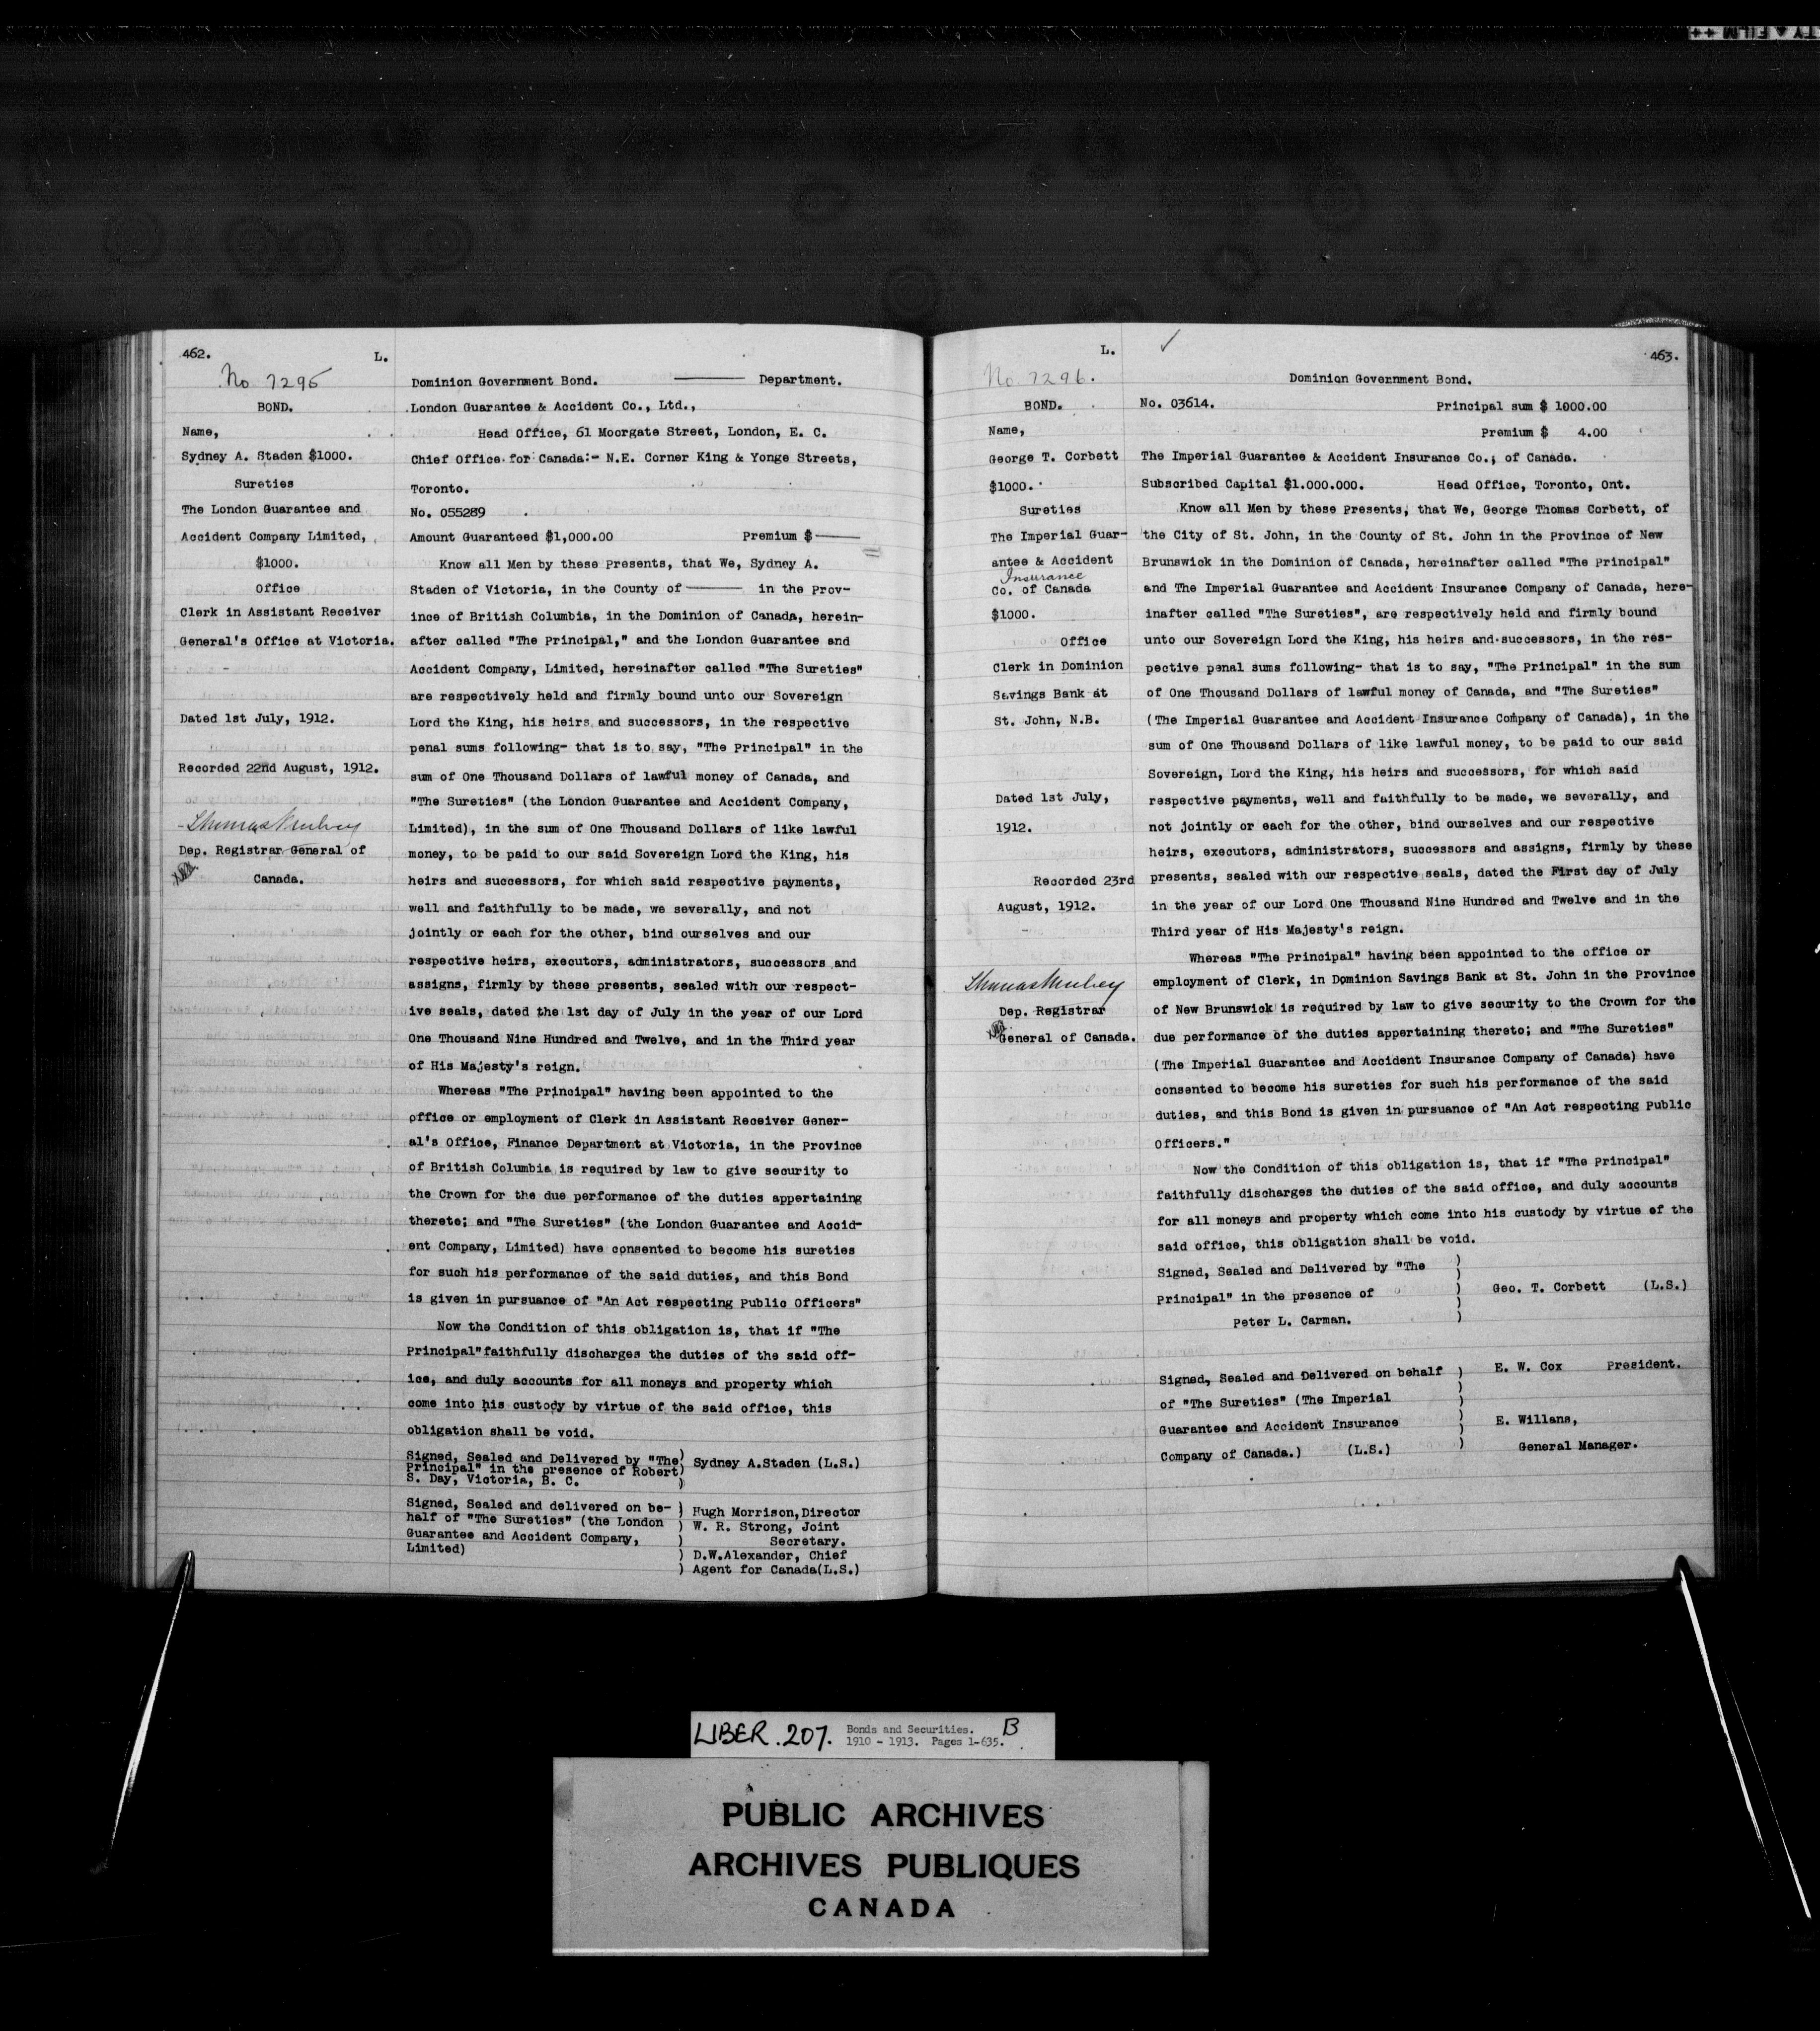 462.
L.
No 7295
BOND.
Name,
Sydney A. Staden $1000.
Sureties
The London Guarantee and
Accident Company Limited,
$1000.
Office
Clerk in Assistant Receiver
General's Office at Victoria.
Dated 1st July, 1912.
Recorded 22nd August, 1912.
Thomas Mulvey
Dep. Registrar General of
Canada.
Dominion Government Bond. ——— Department.
London Guarantee & Accident Co., Ltd.,
Head Office, 61 Moorgate Street, London, E. C.
Chief Office for Canada:- N.E. Corner King & Yonge Streets,
Toronto.
No. 055289
Amount Guaranteed $1,000.00 Premium $ ———
Know all Men by these Presents, that We, Sydney A.
Staden of Victoria, in the County of ——— in the Prov-
ince of British Columbia, in the Dominion of Canada, herein-
after called "The Principal," and the London Guarantee and
Accident Company, Limited, hereinafter called "The Sureties"
are respectively held and firmly bound unto our Sovereign
Lord the King, his heirs and successors, in the respective
penal sums following- that is to say, "The Principal" in the
sum of One Thousand Dollars of lawful money of Canada, and
"The Sureties" (the London Guarantee and Accident Company,
Limited), in the sum of One Thousand Dollars of like lawful
money, to be paid to our said Sovereign Lord the King, his
heirs and successors, for which said respective payments,
well and faithfully to be made, we severally, and not
jointly or each for the other, bind ourselves and our
respective heirs, executors, administrators, successors and
assigns, firmly by these presents, sealed with our respect-
ive seals, dated the 1st day of July in the year of our Lord
One Thousand Nine Hundred and Twelve, and in the Third year
of His Majesty's reign.
Whereas "The Principal" having been appointed to the
office or employment of Clerk in Assistant Receiver Gener-
al's Office, Finance Department at Victoria, in the Province
of British Columbia is required by law to give security to
the Crown for the due performance of the duties appertaining
thereto; and "The Sureties" (the London Guarantee and Accid-
ent Company, Limited) have consented to become his sureties
for such his performance of the said duties, and this Bond
is given in pursuance of "An Act respecting Public Officers"
Now the Condition of this obligation is, that if "The
Principal" faithfully discharges the duties of the said off-
ice, and duly accounts for all moneys and property which
come into his custody by virtue of the said office, this
obligation shall be void.
Signed, Sealed and Delivered by "The
Principal" in the presence of Robert
S. Day, Victoria, B. C.
) Sydney A.Staden (L.S.)
Signed, Sealed and delivered on be-
half of "The Sureties" (the London
Guarantee and Accident Company,
Limited)
) Hugh Morrison,Director
) W. R. Strong, Joint
) Secretary.
) D.W.Alexander, Chief
) Agent for Canada(L.S.)
L.
463.
No. 7296.
BOND.
Name,
George T. Corbett
$1000.
Sureties
The Imperial Guar-
antee & Accident
Insurance
Co. of Canada
$1000.
Office
Clerk in Dominion
Savings Bank at
St. John, N.B.
Dated 1st July,
1912.
Recorded 23rd
August, 1912.
Thomas Mulvey
Dep. Registrar
General of Canada.
Dominion Government Bond.
No. 03614. Principal sum $ 1000.00
Premium $ 4.00
The Imperial Guarantee & Accident Insurance Co., of Canada.
Subscribed Capital $1.000.000. Head Office, Toronto, Ont.
Know all Men by these Presents, that We, George Thomas Corbett, of
the City of St. John, in the County of St. John in the Province of New
Brunswick in the Dominion of Canada, hereinafter called "The Principal"
and The Imperial Guarantee and Accident Insurance Company of Canada, here-
inafter called "The Sureties", are respectively held and firmly bound
unto our Sovereign Lord the King, his heirs and successors, in the res-
pective penal sums following- that is to say, "The Principal" in the sum
of One Thousand Dollars of lawful money of Canada, and "The Sureties"
(The Imperial Guarantee and Accident Insurance Company of Canada), in the
sum of One Thousand Dollars of like lawful money, to be paid to our said
Sovereign, Lord the King, his heirs and successors, for which said
respective payments, well and faithfully to be made, we severally, and
not jointly or each for the other, bind ourselves and our respective
heirs, executors, administrators, successors and assigns, firmly by these
presents, sealed with our respective seals, dated the First day of July
in the year of our Lord One Thousand Nine Hundred and Twelve and in the
Third year of His Majesty's reign.
Whereas "The Principal" having been appointed to the office or
employment of Clerk, in Dominion Savings Bank at St. John in the Province
of New Brunswick is required by law to give security to the Crown for the
due performance of the duties appertaining thereto; and "The Sureties"
(The Imperial Guarantee and Accident Insurance Company of Canada) have
consented to become his sureties for such his performance of the said
duties, and this Bond is given in pursuance of "An Act respecting Public
Officers."
Now the Condition of this obligation is, that if "The Principal"
faithfully discharges the duties of the said office, and duly accounts
for all moneys and property which come into his custody by virtue of the
said office, this obligation shall be void.
Signed, Sealed and Delivered by "The
Principal" in the presence of
Peter L. Carman.
Geo. T. Corbett (L.S.)
Signed, Sealed and Delivered on behalf
of "The Sureties" (The Imperial
Guarantee and Accident Insurance
Company of Canada.) (L.S.)
E. W. Cox President.
E. Willans,
General Manager.
LIBER. 207. Bonds and Securities. B
1910 - 1913. Pages 1-635.
PUBLIC ARCHIVES
ARCHIVES PUBLIQUES
CANADA